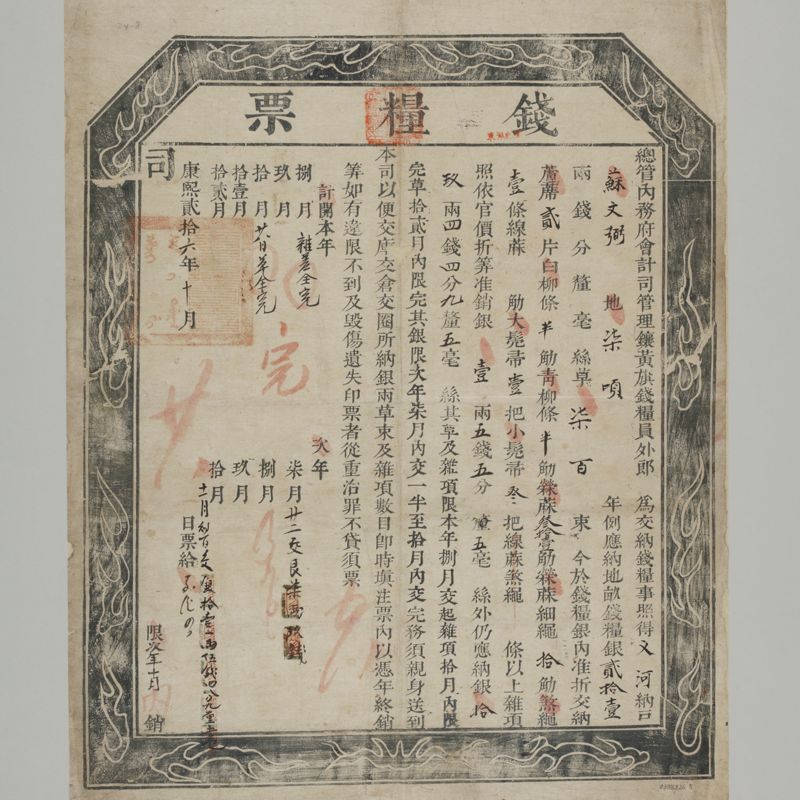 錢糧票
總管內務府會計司管理鑲黃旗錢糧員外郎 為交納錢糧事照得 河納戶
蘇文弼 地柒頃 年例應納地畝錢糧銀貳拾壹
兩 錢 分 釐 毫 絲草 柒百 束 今於錢糧銀內准折交納
蓆貳片白柳條半觔青柳條半觔 蔴 觔 蔴細繩拾觔煞繩
壹條線蔴 觔大髢帚壹把小髢帚 把線蔴煞繩 條以上雜項
照依官價折筭准銷銀 壹 兩五錢五分 釐五毫 絲外仍應納銀拾
玖兩四錢四分九釐五毫 絲其草及雜項限本年捌月交起雜項拾月內限
完草拾貳月內限完其銀限次年柒月內交一半至拾月內交完務須親身送到
本司以便交庫交倉交圈所納銀兩草束及雜項數目即時填注票內以憑年終銷
筭如有違限不到及毀傷遺失印票者從重治罪不貸須票
計開本年
捌月 雜差全完
玖月
拾月 廿日草全完
拾壹月
拾貳月
次年
柒月 廿二交艮柒兩 錢
捌月
玖月
拾月
康熙貳拾六年十月 日票給
司
限次年十月內銷
完